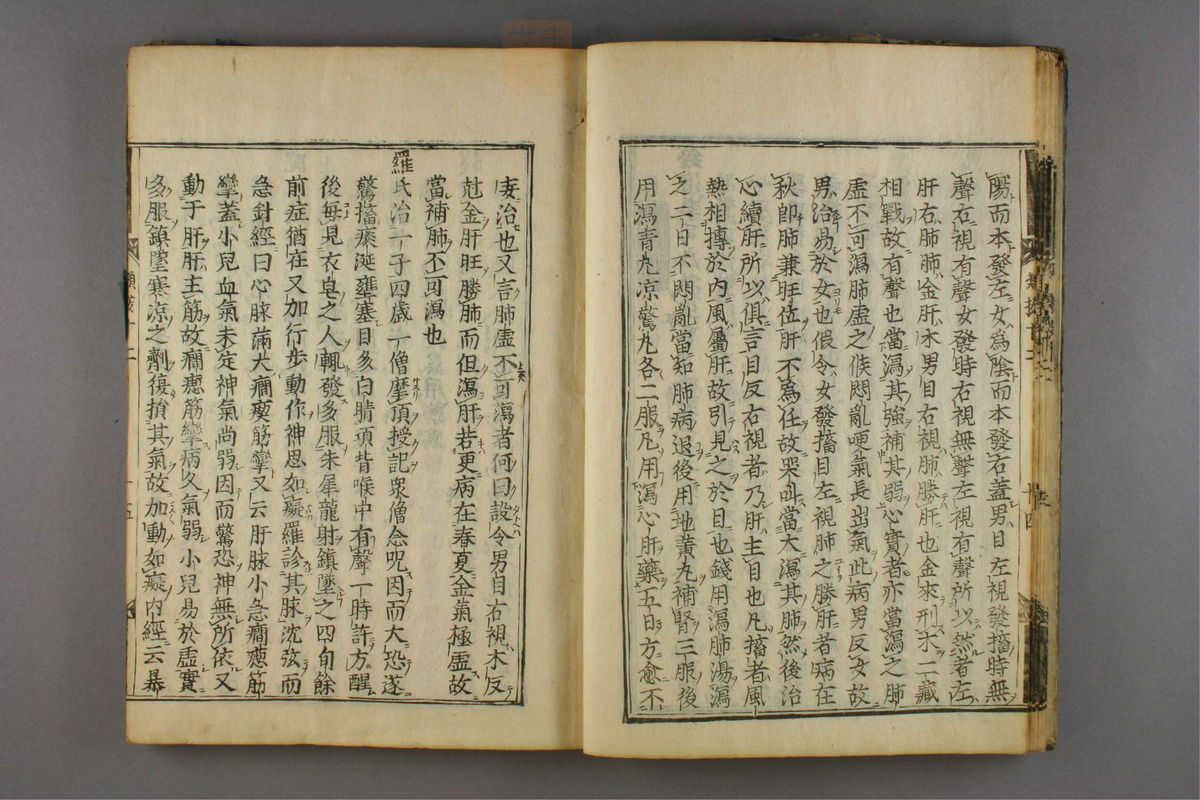 陽而本發左女為陰而本發右蓋男目左視發搐時無
聲右視有聲女發時右視無聲左視有聲所以然者左
肝右肺肺金肝木男目右視肺勝肝也金來刑木二藏
相戰故有聲也當瀉其強補其弱心實者亦當瀉之肺
虛不可瀉肺虛之候悶亂哽氣長出氣此病男反女故
男治易於女也假令女發搐目左視肺之勝肝者病在
秋卽肺兼旺位肝不爲任故哭叫當大瀉其肺然後治
心續肝所以俱言目反右視者乃肝主目也凡搐者風
熱相摶於內風屬肝故引見之於目也錢用瀉肺湯瀉
之二日不悶亂當知肺病退後用地黃丸補腎三服後
用瀉青丸凉驚丸各二服凡用瀉心肝藥五日方愈不
妄治也又言肺虛不可瀉者何曰設令男目右視木反
尅金肝旺勝肺而但瀉肝若更病在春夏金氣極虛故
當補肺不可瀉也
羅氏治一子四歲一僧摩頂授記眾僧念呪因而大恐遂
驚搐痰涎壅塞目多白睛項背喉中有聲一時許方醒
後每見衣皂之人輒發多服朱犀龍射鎮墜之四旬餘
前症猶在又加行步動作神思如癡羅診其脉沈弦而
急針經曰心脉滿大癇瘈筋攣又云肝脉小急癇瘛筋
攣蓋小兒血氣未定神氣尚弱因而驚恐神無所依又
動于肝肝主筋故癇瘛筋攣病久氣弱小兒易於虛實
多服鎮墜寒凉之劑復損其氣故加動如癡內經云暴
類案十二
五
十四